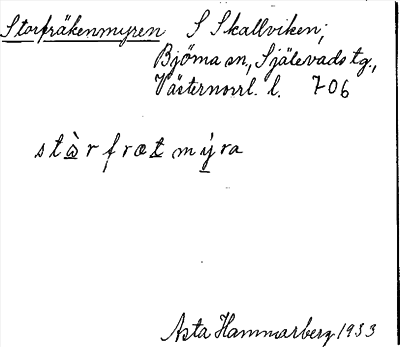 Storfräkenmyren S Skallviken;
Björna sn, Själevads tg.,
Västernorrl. l. 706
stàrfrætmýra
Asta Hammarberg 1933